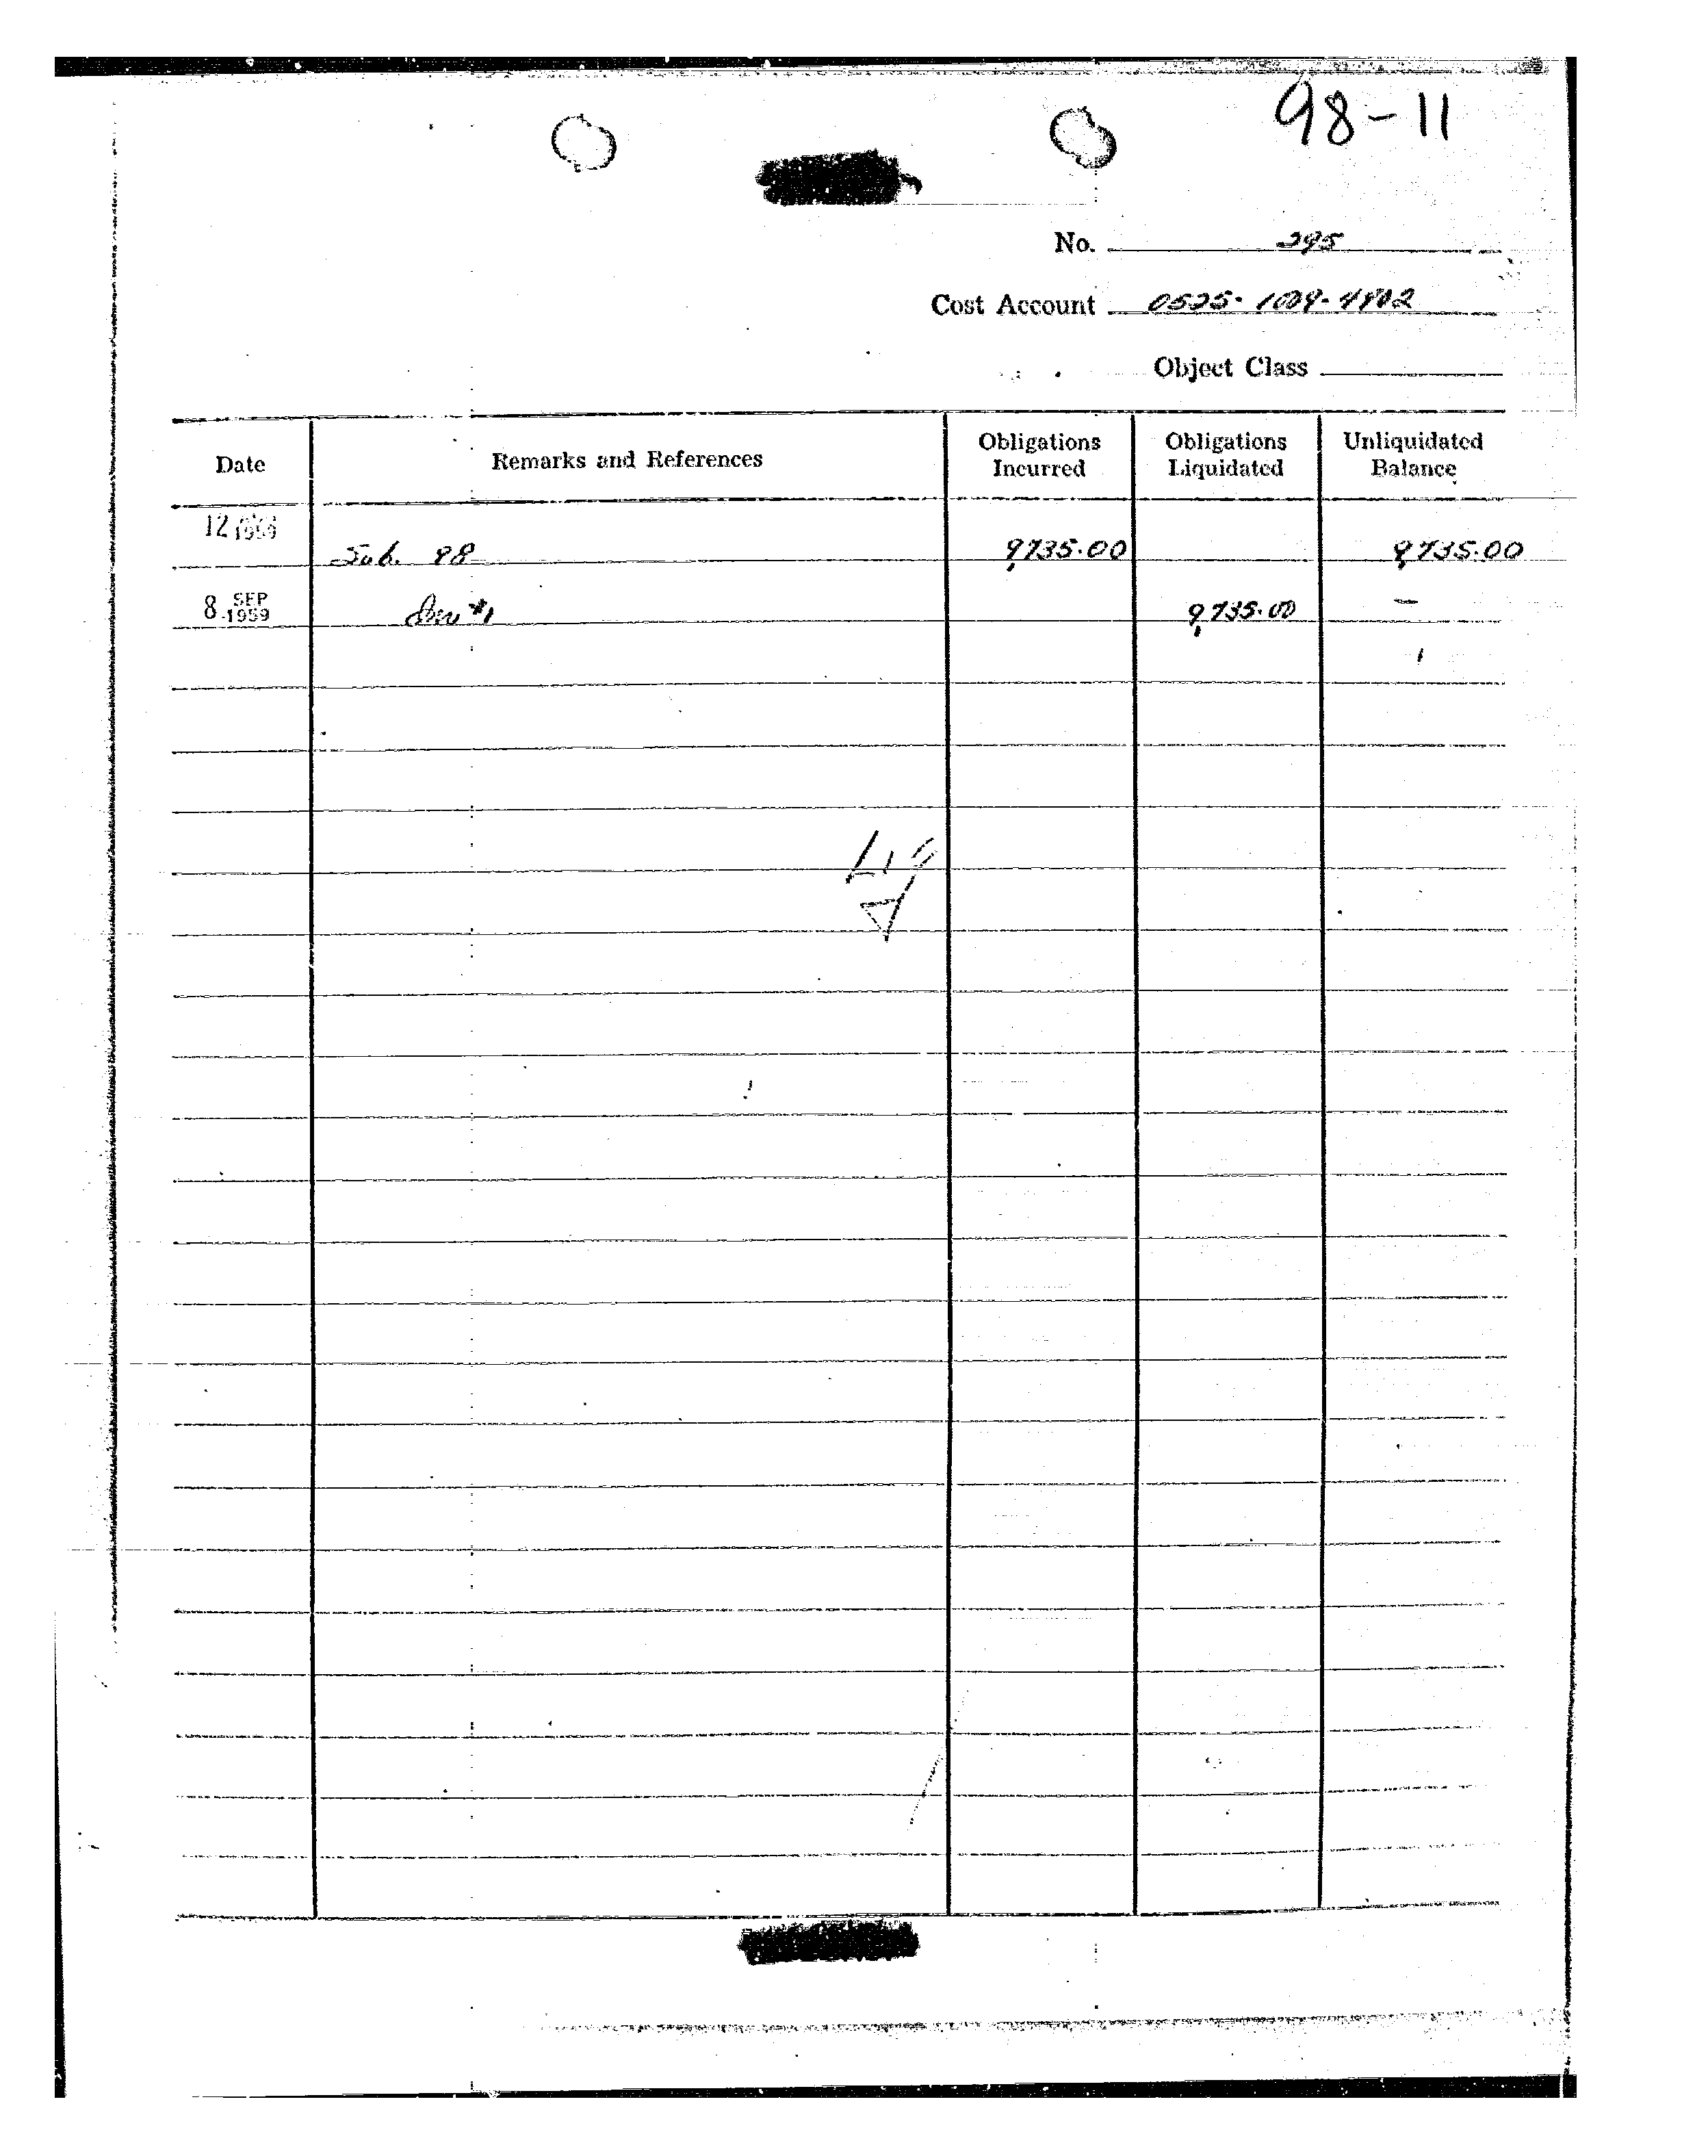 98-11
No. 295
Cost Account 0525-1009-4902
Object Class
Date Remarks and References Obligations Incurred Obligations Liquidated Unliquidated Balance
12 1959 Sub. 98 9,735.00 9,735.00
8 SEP 1959 Inv #1 9,735.00 —